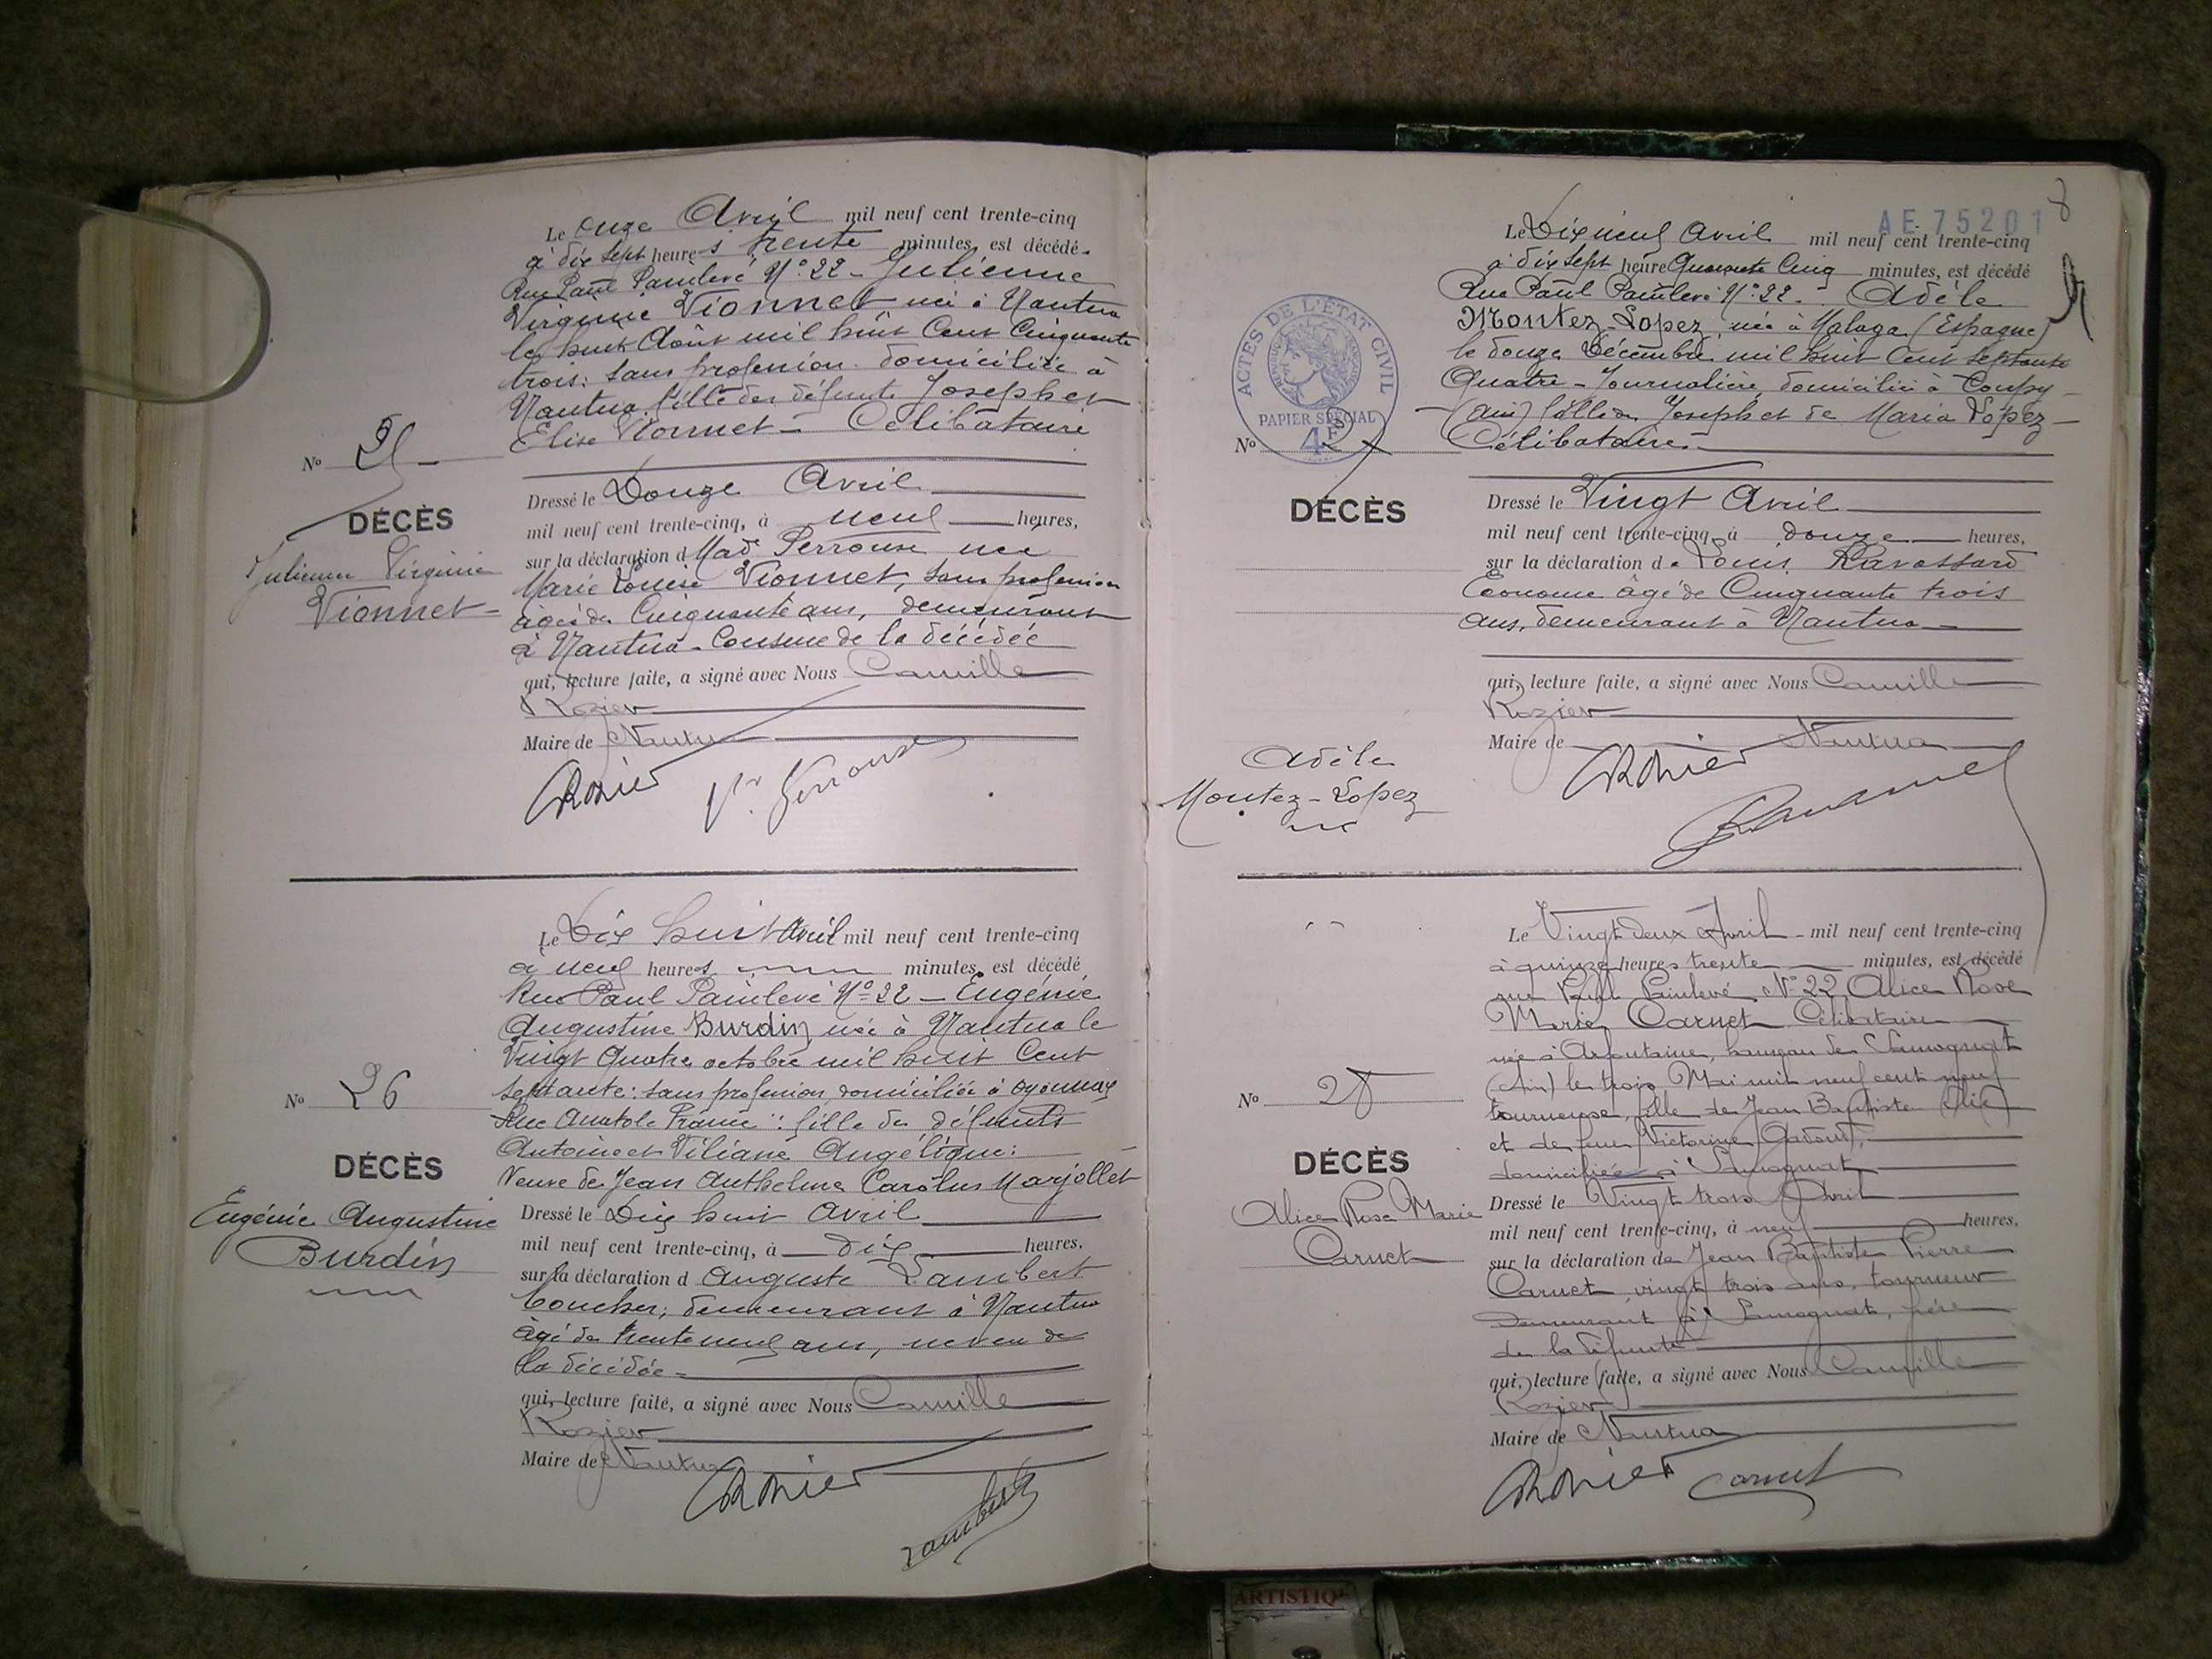 Le onze Avril mil neuf cent trente-cinq
à dix sept heures trente minutes, est décédé
Rue Paul Painlevé N° 22 - Julienne
Virginie Vionnet née à Nantua
le huit Août mil huit Cent Cinquante
trois: sans profession domiciliée à
Nantua fille des défunts Joseph et
Elise Vionnet - Célibataire
N° 25
DÉCÈS
Julienne Virginie
Vionnet
Dressé le Douze Avril
mil neuf cent trente-cinq, à neuf heures,
sur la déclaration d Mad. Perrouse née
Marie Louise Vionnet, sans profession
âgée de Cinquante ans, demeurant
à Nantua - Cousine de la décédée
qui, lecture faite, a signé avec Nous Camille
Rozier
Maire de Nantua
Rozier Perrouse
Le Dix huit Avril mil neuf cent trente-cinq
à neuf heures minutes, est décédé
Rue Paul Painlevé N° 22 - Eugénie
Augustine Burdin née à Nantua le
Vingt Quatre octobre mil huit Cent
septante: sans profession, domiciliée à Oyonnax
Rue Anatole France: fille de défunts
Antoine et Angélique:
Veuve de Jean Anthelme Carolus Marjollet
N° 26
DÉCÈS
Eugénie Augustine
Burdin
Dressé le Dix huit Avril
mil neuf cent trente-cinq, à dix heures,
sur la déclaration d Auguste Lambert
boucher, demeurant à Nantua
âgé de trente neuf ans, neveu de
la décédée -
qui, lecture faite, a signé avec Nous Camille
Rozier
Maire de Nantua
Rozier
Lambert
8
AE 75201
Le Dix neuf Avril mil neuf cent trente-cinq
à dix sept heure Quarante Cinq minutes, est décédé
Rue Paul Painlevé N° 22 - Adèle
Montez-Lopez, née à Malaga (Espagne)
le douze Décembre mil huit Cent septante
Quatre - Journalière, domiciliée à Coupy
(Ain) fille de Joseph et de Maria Lopez -
Célibataire -
ACTES DE L'ÉTAT CIVIL
PAPIER SPÉCIAL
4F
N°
DÉCÈS
Adèle
Montez-Lopez
Dressé le Vingt Avril
mil neuf cent trente-cinq à douze heures,
sur la déclaration de Louis Ravassard
Econome âgé de Cinquante trois
ans, demeurant à Nantua -
qui, lecture faite, a signé avec Nous Camille
Rozier
Maire de Nantua
Rozier
Le Vingt deux Avril mil neuf cent trente-cinq
à quinze heures trente minutes, est décédé
rue Paul Painlevé N° 22, Alice Rose
Marie Carnet Célibataire
née à Arfontaine, hameau de Samognat
(Ain) le trois Mai mil neuf cent neuf
tourneuse, fille de Jean Baptiste
et de feue Victorine
domiciliée à Samognat
N° 28
DÉCÈS
Alice Rose Marie
Carnet
Dressé le Vingt trois Avril
mil neuf cent trente-cinq, à neuf heures,
sur la déclaration de Jean Baptiste Pierre
Carnet, vingt trois ans, tourneur
Demeurant à Samognat, frère
de la défunte
qui, lecture faite, a signé avec Nous Camille
Rozier
Maire de Nantua
Rozier Carnet
ARTISTIQ